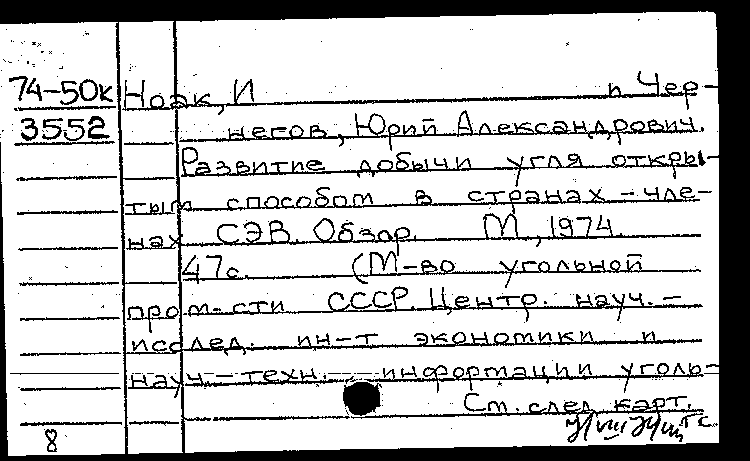 74-50к Ноак, И п. Чер-
3552 негов, Юрий Александрович.
Развитие добычи угля откры-
тым способом в странах - чле-
нах СЭВ. Обзор. М., 1974.
47с. (М-во угольной
пром-сти СССР. Центр. науч.-
исслед. ин-т экономики и
науч.-техн. информации уголь-
См. след. карт.
8